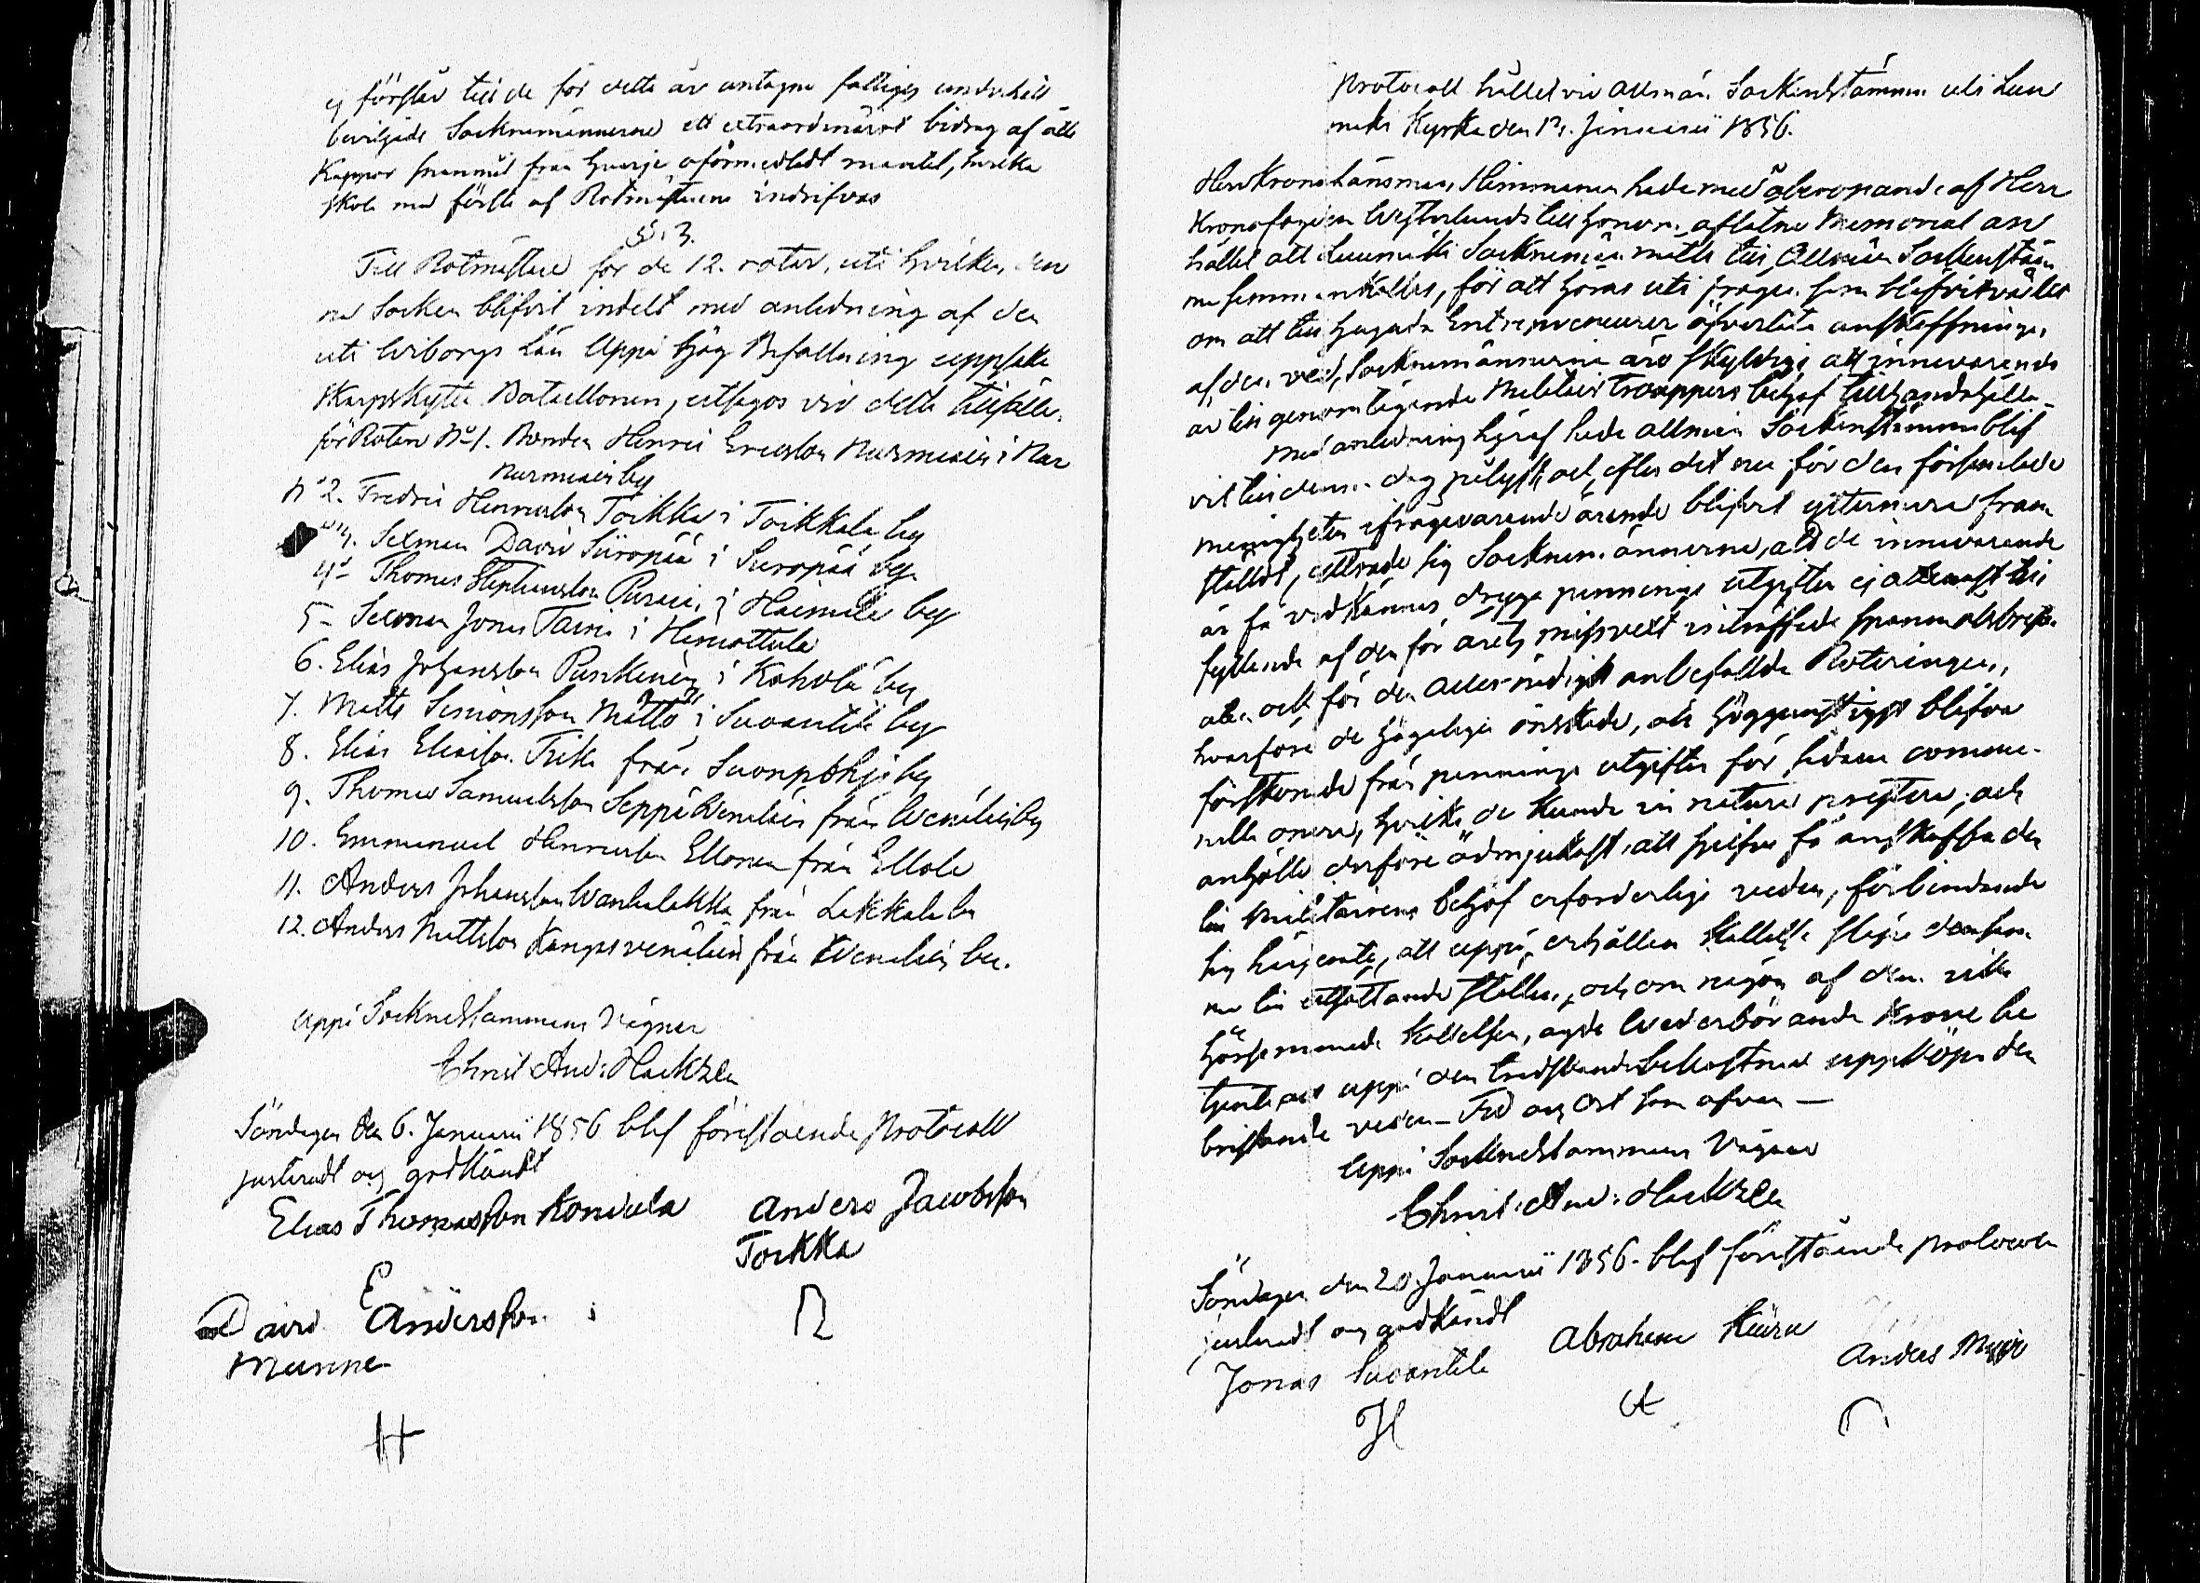 ej förslår till de för detta år antagne fattiges underhåll
beviljade Socknemännerne ett extraordinärt bidrag af åtta
Kappor spanmål från hvarje oförmedladt mantal, hvilka
skola med första af Rotmästarene indrifvas
§. 3.
Till Rotmästare för de 12. rotar, uti hvilka den
na Socken blifvit indelt med anledning af den
uti Wiborgs Län uppå Hög Befallning uppsatte
Skarpskytte Bataillonen, utsågos vid detta tillfälle.
för Roten No 1. Bonden Henric Ericsson Nurmiain i
Nurmiais by
No 2. Fredric Henricsson Toikka i Toikkala by
Sexman David Suropää i Suropää by
4 Thomas Stephansson i by
5 - Sexman Jonas Taina i Heimottula
6. Elias Johansson Punkinen i Kohola by
7. Matts Simonsson Mättö i Suoanttila by
8. Elias Eliasson från Suonpohja by
9. Thomas Samuelsson Seppä Wenäläin från Wenäläis by
10. Emmanuel Henricsson Ellonen från Ellola
11. Anders Johansson Wanhalakka från Lakkala by
12. Anders Mattsson från Wenäläis by.
uppå Socknestämmans vägnar
Christ: And: Hackzell
Söndagen den 6. Januarii 1856 blef förestående Protocoll
justeradt och godkändt
Elias Thomasson Kondula Anders Jacobsson
Toikka
David E Andersson
Munne
H
Protocoll hållet vid Allmän Sockenstämma uti Luu
mäki Kyrka den 13. Januarii 1856.
Herr Kronolänsman hade med åberopande af Herr
Kronofogden Westerlunds till honom aflåtne Memorial an
hållit att Luumäki Socknemän måtte till Allmän Sockenstäm
ma sammankallas, för att höras uti frågan som blifvit väckt
om att till hugade Entrepreneurer öfverlåta anskaffningen
af den ved, Socknemännerne äro skyldige att innevarande
år till genomtågande Militair Trouppers behof tillhandahålla
Med anledning häraf hade allmän Sockenstämma blif
vit till denna dag pålyst, och, efter det nu för den församlade
Menigheten ifrågavarande ärende blifvit ytterligare fram
ställdt, yttrade sig Socknemännerne, att de innevarande
år få vidkännas dryga pennings utgifter ej allenast till
fyllande af den för årets missvext inträffade spanmålsbrist
utan ock för den Allernådigst anbefallda Roteringen,
hvarföre de högeligen önskade, att höggunstigst blifva
förskonade från pennings utgifter för sådane commu-
nella onera, hvilka de kunde in natura prestera, och
anhålla derföre ödmjukast att sjelfve få anskaffa den
till Militairens behof erforderlige veden, förbindande
sig härjemte, att uppå erhållen kallelse släpa densam
ma till utsättande ställen, och om någon af dem icke
hörsammade kallelsen, ägde Wederbörande Krono be
tjente att uppå den tredskandes bekostnad uppköpa den
bristande veden - Tid och Ort som ofvan -
Uppå Socknestämmans Vägnar
Christ: And: Hackzell
Söndagen den 20 Januarii 1856. blef förestående protocoll
justeradt och godkändt
Jonas Suoantila Abraham Kiuru Anders
H A